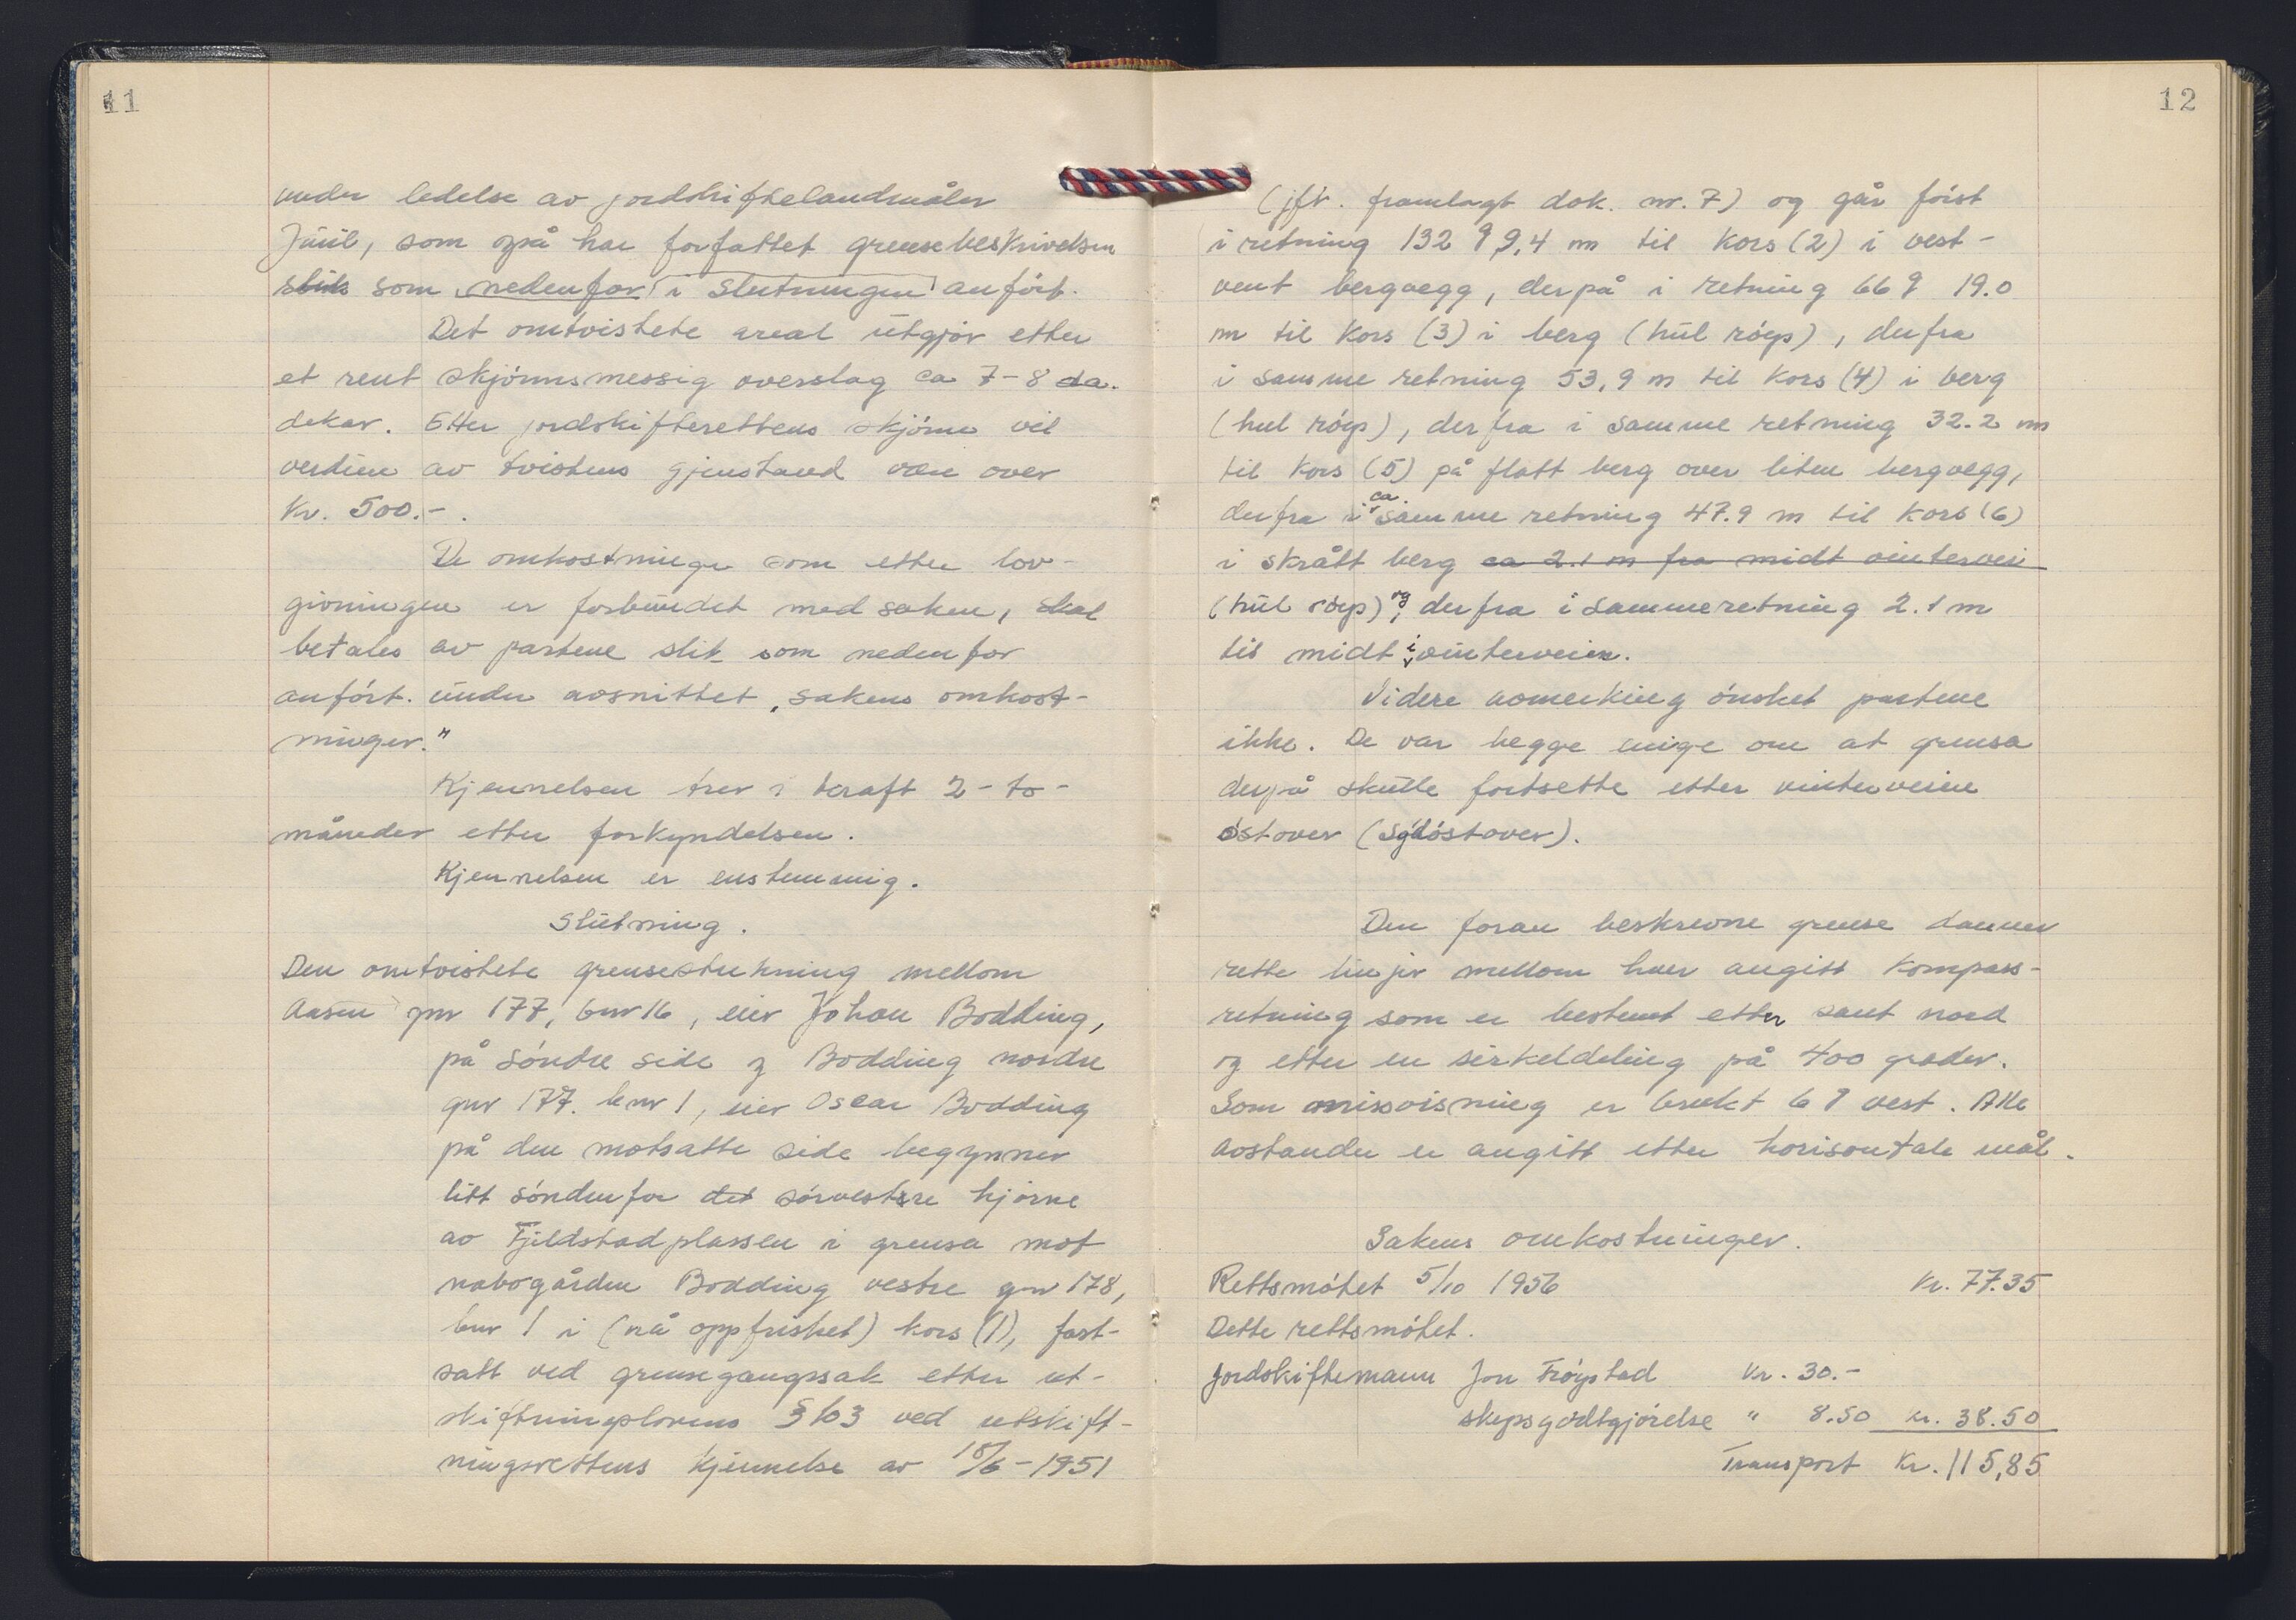 11
under ledelse av jordskiftelandmåler
Juul, som også har forfattet grensebeskrivelsen
slik som nedenfor i slutningen anført.
Det omtvistete areal utgjør etter
et rent skjønnsmessig overslag ca 7-8 da.
dekar. Etter jordskifterettens skjønn vil
verdien av tvistens gjenstand være over
kr. 500.-.
De omkostninger som etter lov-
givningen er forbundet med saken, skal
betales av partene slik som nedenfor
anført. under avsnittet „sakens omkost-
ninger."
Kjennelsen trer i kraft 2-to-
måneder etter forkyndelsen.
Kjennelsen er enstemmig.
Slutning.
Den omtvistete grensestrekning mellom
Aasen gnr 177, bnr 16, eier Johan Bodding,
på søndre side og Bodding nordre
gnr 177. bnr 1, eier Oscar Bodding
på den motsatte side begynner
litt søndenfor det sørvestre hjørne
av Fjeldstadplassen i grensa mot
nabogården Bodding vestre gnr 178,
bnr 1 i (nå oppfrisket) kors (1), fast-
satt ved grensegangssak etter ut-
skiftningslovens § 103 ved utskift-
ningsrettens kjennelse av 18/6-1951
12
(jfr. framlagt dok. nr. 7) og går først
i retning 132 g 9,4 m til kors (2) i vest-
vent bergvegg, derpå i retning 66 g 19.0
m til kors (3) i berg (hul røys), derfra
i samme retning 53,9 m til kors (4) i berg
(hul røys), derfra i samme retning 32.2 m
til kors (5) på flatt berg over liten bergvegg,
derfra i ca. samme retning 47.9 m til kors (6)
i skrått berg ca 2.1 m fra midt vintervei
(hul røys) og derfra i samme retning 2.1 m
til midt i vinterveien.
Videre avmerking ønsket partene
ikke. De var begge enige om at grensa
derpå skulle fortsette etter vinterveien
østover (sydøstover).
Den foran beskrevne grense danner
rette linjer mellom hver angitt kompass-
retning som er bestemt etter sant nord
og etter en sirkeldeling på 400 grader.
Som missvisning er brukt 6 g vest. Alle
avstander er angitt etter horisontale mål.
Sakens omkostninger.
Rettsmøtet 5/10 1956 kr. 77.35
Dette rettsmøtet.
Jordskiftemann Jon Frøystad kr. 30.-
skyssgodtgjørelse " 8.50 kr. 38.50
Transport kr. 115,85